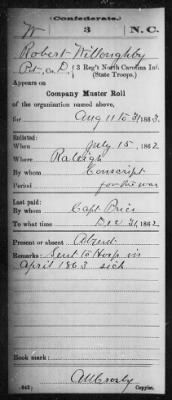 (Confederate.)
W 3 N.C.
Robert Willoughby
Pvt, Co. D, 3 Reg't North Carolina Inf.
(State Troops.)
Appears on
Company Muster Roll
of the organization named above,
for Aug 11 to 31, 1863.
Enlisted:
When July 15, 1862
Where Raleigh
By whom Conscript
Period for the war
Last paid:
By whom Capt Price
To what time Dec 31, 1862
Present or absent Absent
Remarks: Sent to Hosp in
April 1863 sick
Book mark:
(642) Copyist.